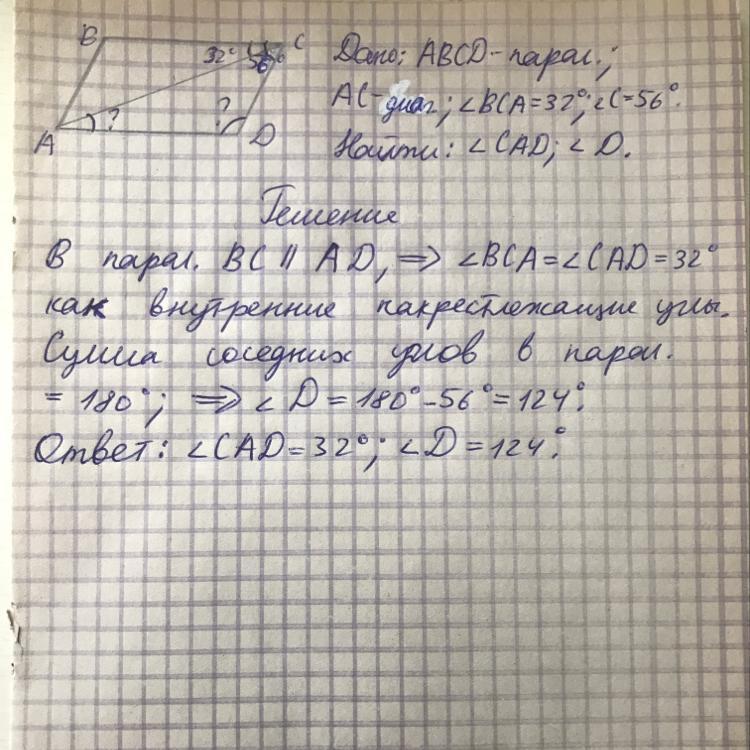 B
32°
56°
C
Дано: ABCD - парал.;
AC - диаг; ∠BCA = 32°; ∠C = 56°.
A
?
?
D
Найти: ∠CAD; ∠D.
Решение
В парал. BC || AD, ⇒ ∠BCA = ∠CAD = 32°
как внутренние накрестлежащие углы.
Сумма соседних углов в парал.
= 180°; ⇒ ∠D = 180° - 56° = 124°.
Ответ: ∠CAD = 32°; ∠D = 124°.